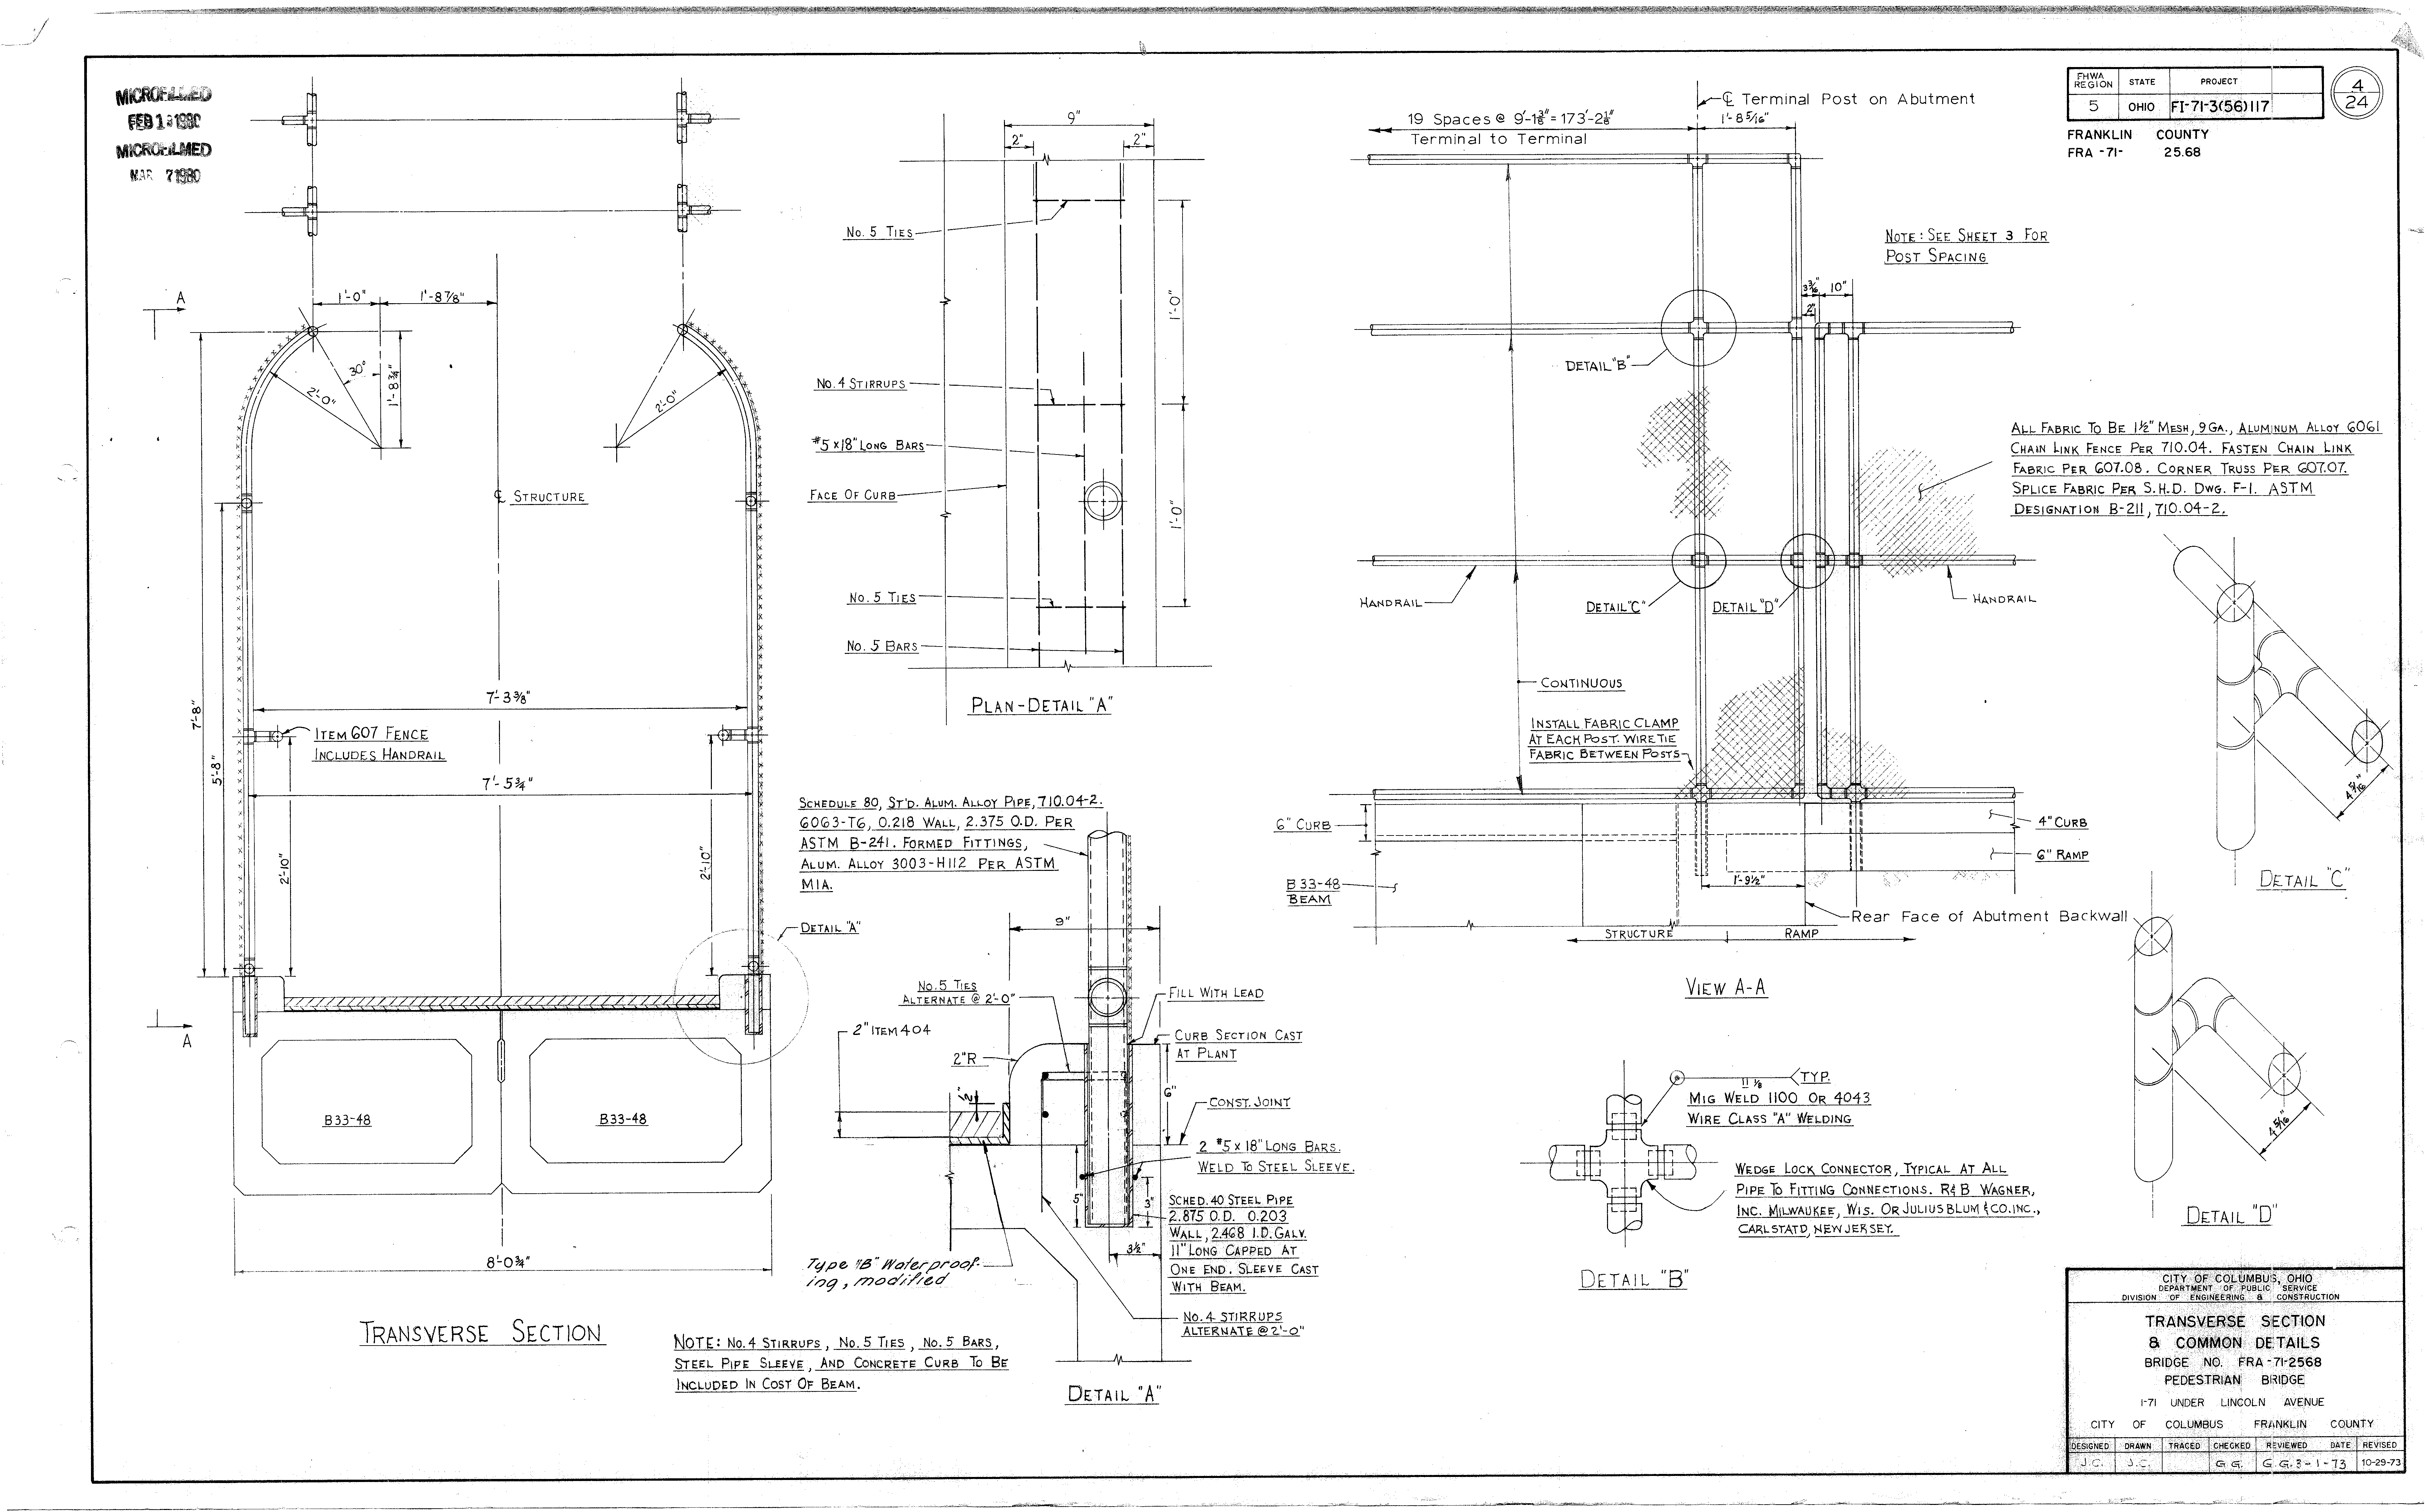 MICROFILMED
FEB 1 1980
MICROFILMED
MAR 7 1980
FHWA REGION
STATE
PROJECT
5
OHIO
FI-71-3(56)117
4
24
FRANKLIN COUNTY
FRA -71- 25.68
A
1'-0"
1'-8 7/8"
30°
2'-0"
1'-8 3/4"
2'-0"
℄ STRUCTURE
7'-8"
5'-8"
7'-3 3/8"
ITEM 607 FENCE
INCLUDES HANDRAIL
7'-5 3/4"
2'-10"
2'-10"
DETAIL "A"
A
B33-48
B33-48
8'-0 3/4"
TRANSVERSE SECTION
9"
2"
2"
NO. 5 TIES
1'-0"
NO. 4 STIRRUPS
#5 x 18" LONG BARS
FACE OF CURB
1'-0"
NO. 5 TIES
NO. 5 BARS
PLAN-DETAIL "A"
SCHEDULE 80, ST'D. ALUM. ALLOY PIPE, 710.04-2.
6063-T6, 0.218 WALL, 2.375 O.D. PER
ASTM B-241. FORMED FITTINGS,
ALUM. ALLOY 3003-H112 PER ASTM
MIA.
9"
NO. 5 TIES
ALTERNATE @ 2'-0"
FILL WITH LEAD
2" ITEM 404
2"R
CURB SECTION CAST
AT PLANT
1/2"
6"
CONST. JOINT
2 #5 x 18" LONG BARS.
WELD TO STEEL SLEEVE.
5"
3"
SCHED. 40 STEEL PIPE
2.875 O.D. 0.203
WALL, 2.468 I.D. GALV.
11" LONG CAPPED AT
ONE END. SLEEVE CAST
WITH BEAM.
3 1/2"
Type "B" Waterproof-
ing, modified
NO. 4 STIRRUPS
ALTERNATE @ 2'-0"
NOTE: NO. 4 STIRRUPS, NO. 5 TIES, NO. 5 BARS,
STEEL PIPE SLEEVE, AND CONCRETE CURB TO BE
INCLUDED IN COST OF BEAM.
DETAIL "A"
℄ Terminal Post on Abutment
19 Spaces @ 9'-1 3/8" = 173'-2 1/8"
Terminal to Terminal
1'-8 5/16"
NOTE: SEE SHEET 3 FOR
POST SPACING
3 3/16"
10"
2"
DETAIL "B"
ALL FABRIC TO BE 1 1/2" MESH, 9 GA., ALUMINUM ALLOY 6061
CHAIN LINK FENCE PER 710.04. FASTEN CHAIN LINK
FABRIC PER 607.08. CORNER TRUSS PER 607.07.
SPLICE FABRIC PER S.H.D. DWG. F-1. ASTM
DESIGNATION B-211, 710.04-2.
HANDRAIL
DETAIL "C"
DETAIL "D"
HANDRAIL
CONTINUOUS
INSTALL FABRIC CLAMP
AT EACH POST. WIRE TIE
FABRIC BETWEEN POSTS
6" CURB
4" CURB
6" RAMP
B 33-48
BEAM
1'-9 1/2"
Rear Face of Abutment Backwall
STRUCTURE
RAMP
VIEW A-A
4 5/16"
DETAIL "C"
4 5/16"
DETAIL "D"
11 1/8
TYP.
MIG WELD 1100 OR 4043
WIRE CLASS "A" WELDING
WEDGE LOCK CONNECTOR, TYPICAL AT ALL
PIPE TO FITTING CONNECTIONS. R & B WAGNER,
INC. MILWAUKEE, WIS. OR JULIUS BLUM & CO. INC.,
CARLSTATD, NEW JERSEY.
DETAIL "B"
CITY OF COLUMBUS, OHIO
DEPARTMENT OF PUBLIC SERVICE
DIVISION OF ENGINEERING & CONSTRUCTION
TRANSVERSE SECTION
& COMMON DETAILS
BRIDGE NO. FRA-71-2568
PEDESTRIAN BRIDGE
I-71 UNDER LINCOLN AVENUE
CITY OF COLUMBUS FRANKLIN COUNTY
DESIGNED DRAWN TRACED CHECKED REVIEWED DATE REVISED
J.C. J.C. G G. G. G. 3-1-73 10-29-73